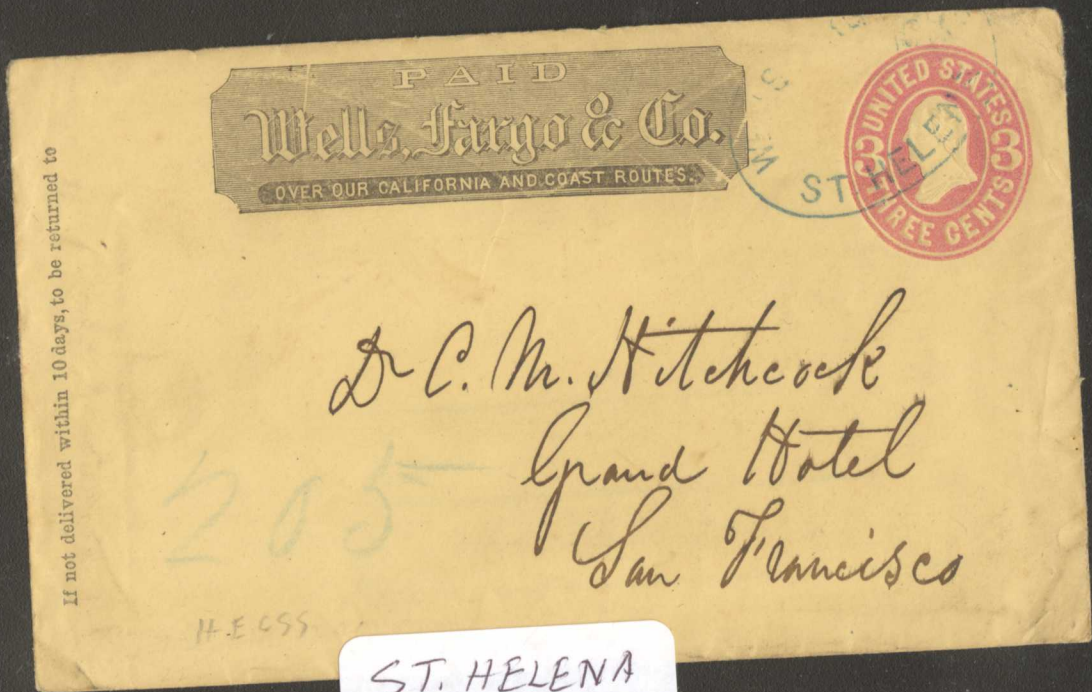 PAID
Wells, Fargo & Co.
OVER OUR CALIFORNIA AND COAST ROUTES.
ST HELENA
UNITED STATES
3 3
THREE CENTS
If not delivered within 10 days, to be returned to
Dr C. M. Hitchcock
Grand Hotel
San Francisco
205
ST. HELENA